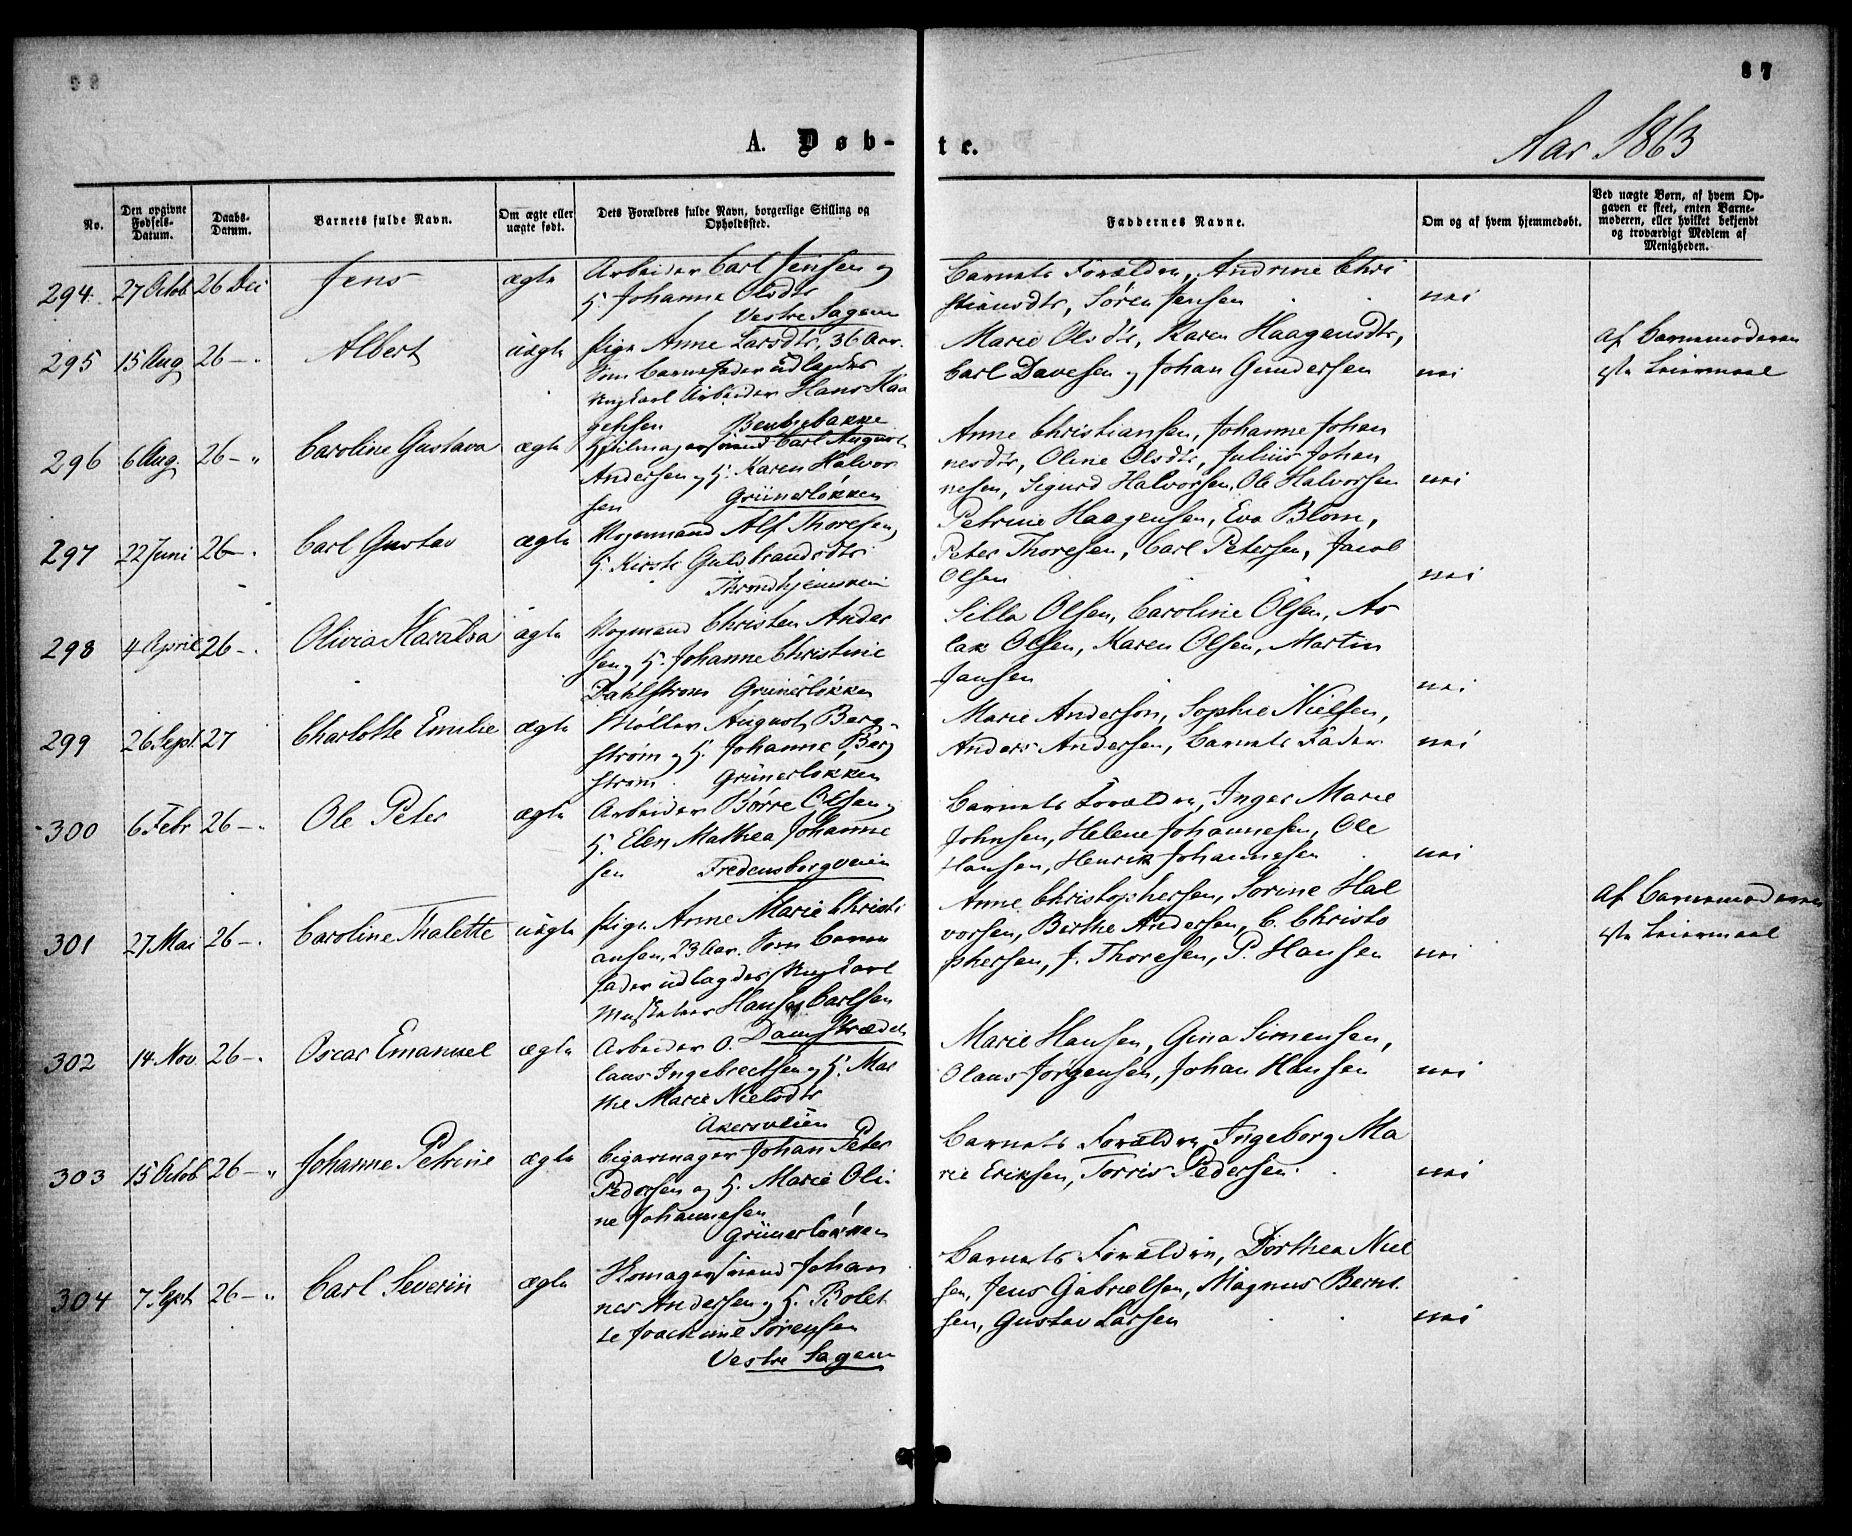 87
A. Døb-
te.
Aar 1863
No.
Den opgivne Fødsels-Datum.
Daabs-Datum.
Barnets fulde Navn.
Om ægte eller uægte født.
Dets Forældres fulde Navn, borgerlige Stilling og Opholdssted.
Faddernes Navne.
Om og af hvem hjemmedøbt.
Ved uægte Børn, af hvem Opgaven er skeet, enten Barnemoderen, eller hvilket bekjendt og troværdigt Medlem af Menigheden.
294. 27 Octb. 26 Dec Jens ægte
Arbeider Carl Jensen og
H. Johanne Olsdtr
Vestre Sagene
Barnets Forældre, Andrine Chri
stiansdtr, Søren Jensen
nei
295 15 Aug 26 — Albert uægte
Pige Anne Larsdtr, 36 Aar.
Som Barnefader udlagdes
Ungkarl Arbeider Hans Haa
gensen Bentsebakke
Marie Olsdtr, Karen Haagensdtr,
Carl Davesen og Johan Gundersen
nei
af Barnemoderen
1ste Leiermaal
296 6 Aug 26 — " Caroline Gustava ægte
Carl August
Andersen og H. Karen Halvor
sen Grünerløkken
Anne Christiansen, Johanne Johan
nesdtr, Oline Olsdtr, Julius Johan
nesen, Sigurd Halvorsen, Ole Halvorsen
nei
297 22 Juni 26 — Carl Gustav ægte
Vognmand Alf Thoresen,
H. Kirsti Guldbrandsdtr
Throndhjemsveien
Petrine Haagensen, Eva Blom,
Peter Thoresen, Carl Petersen, Jacob
Olsen
nei
298 4 April 26 — Olivia Haralda ægte
Vognmand Christen Ander
sen og H. Johanne Christine
Dahlstrøm Grünerløkken
Silla Olsen, Caroline Olsen, As
lak Olsen, Karen Olsen, Martin
Jansen
nei
299 26 Sept. 27 Charlotte Emilie ægte
Møller August Berg-
strøm og H. Johanne Berg
strøm Grünerløkken
Marie Anderson, Sophie Nielsen,
Anders Andersen, Barnets Fader
nei
300 6 Febr 26 — Ole Peter ægte
Arbeider Børre Olsen og
H. Elen Mathea Johanne
sen Fredensborgveien
Barnets Forældre, Inger Marie
Johnsen, Helene Johannesen, Ole
Hansen, Henrik Johannesen
nei
301 27 Mai 26 — Caroline Thalette uægte
Pige Anne Marie Christi
ansen, 23 Aar. Som Barne
fader udlagdes Ungkarl
Musketeer Hans Carlsen
Damstrædet
Anne Christophersen, Sorine Hal
vorsen, Berthe Andersen, C. Christo
phersen, J. Thoresen, P. Hansen
nei
af Barnemoderen
1ste Leiermaal
302 14 Nov. 26 — Oscar Emanuel ægte
Arbeider O.
laus Ingebrectsen og H. Mar
the Marie Nielsdtr
Akersveien
Marie Hansen, Gina Simensen,
Olaus Jørgensen, Johan Hansen
nei
303 15 Octob 26 — " Johanne Petrine ægte
Cigarmager Johan Peter
Pedersen og H. Marie Oli
ne Johannesen
Grünerløkken
Barnets Forældre, Ingeborg Ma
rie Eriksen, Torris Pedersen
nei
304 7 Sept 26 — " Carl Severin ægte
Skomagersvend Johan
nes Andersen og H. Bolet
te Joachime Sørensen
Vestre Sagene
Barnets Forældre, Dorthea Niel
sen, Jens Gabrielsen, Magnus Bernt
sen, Gustav Larsen
nei